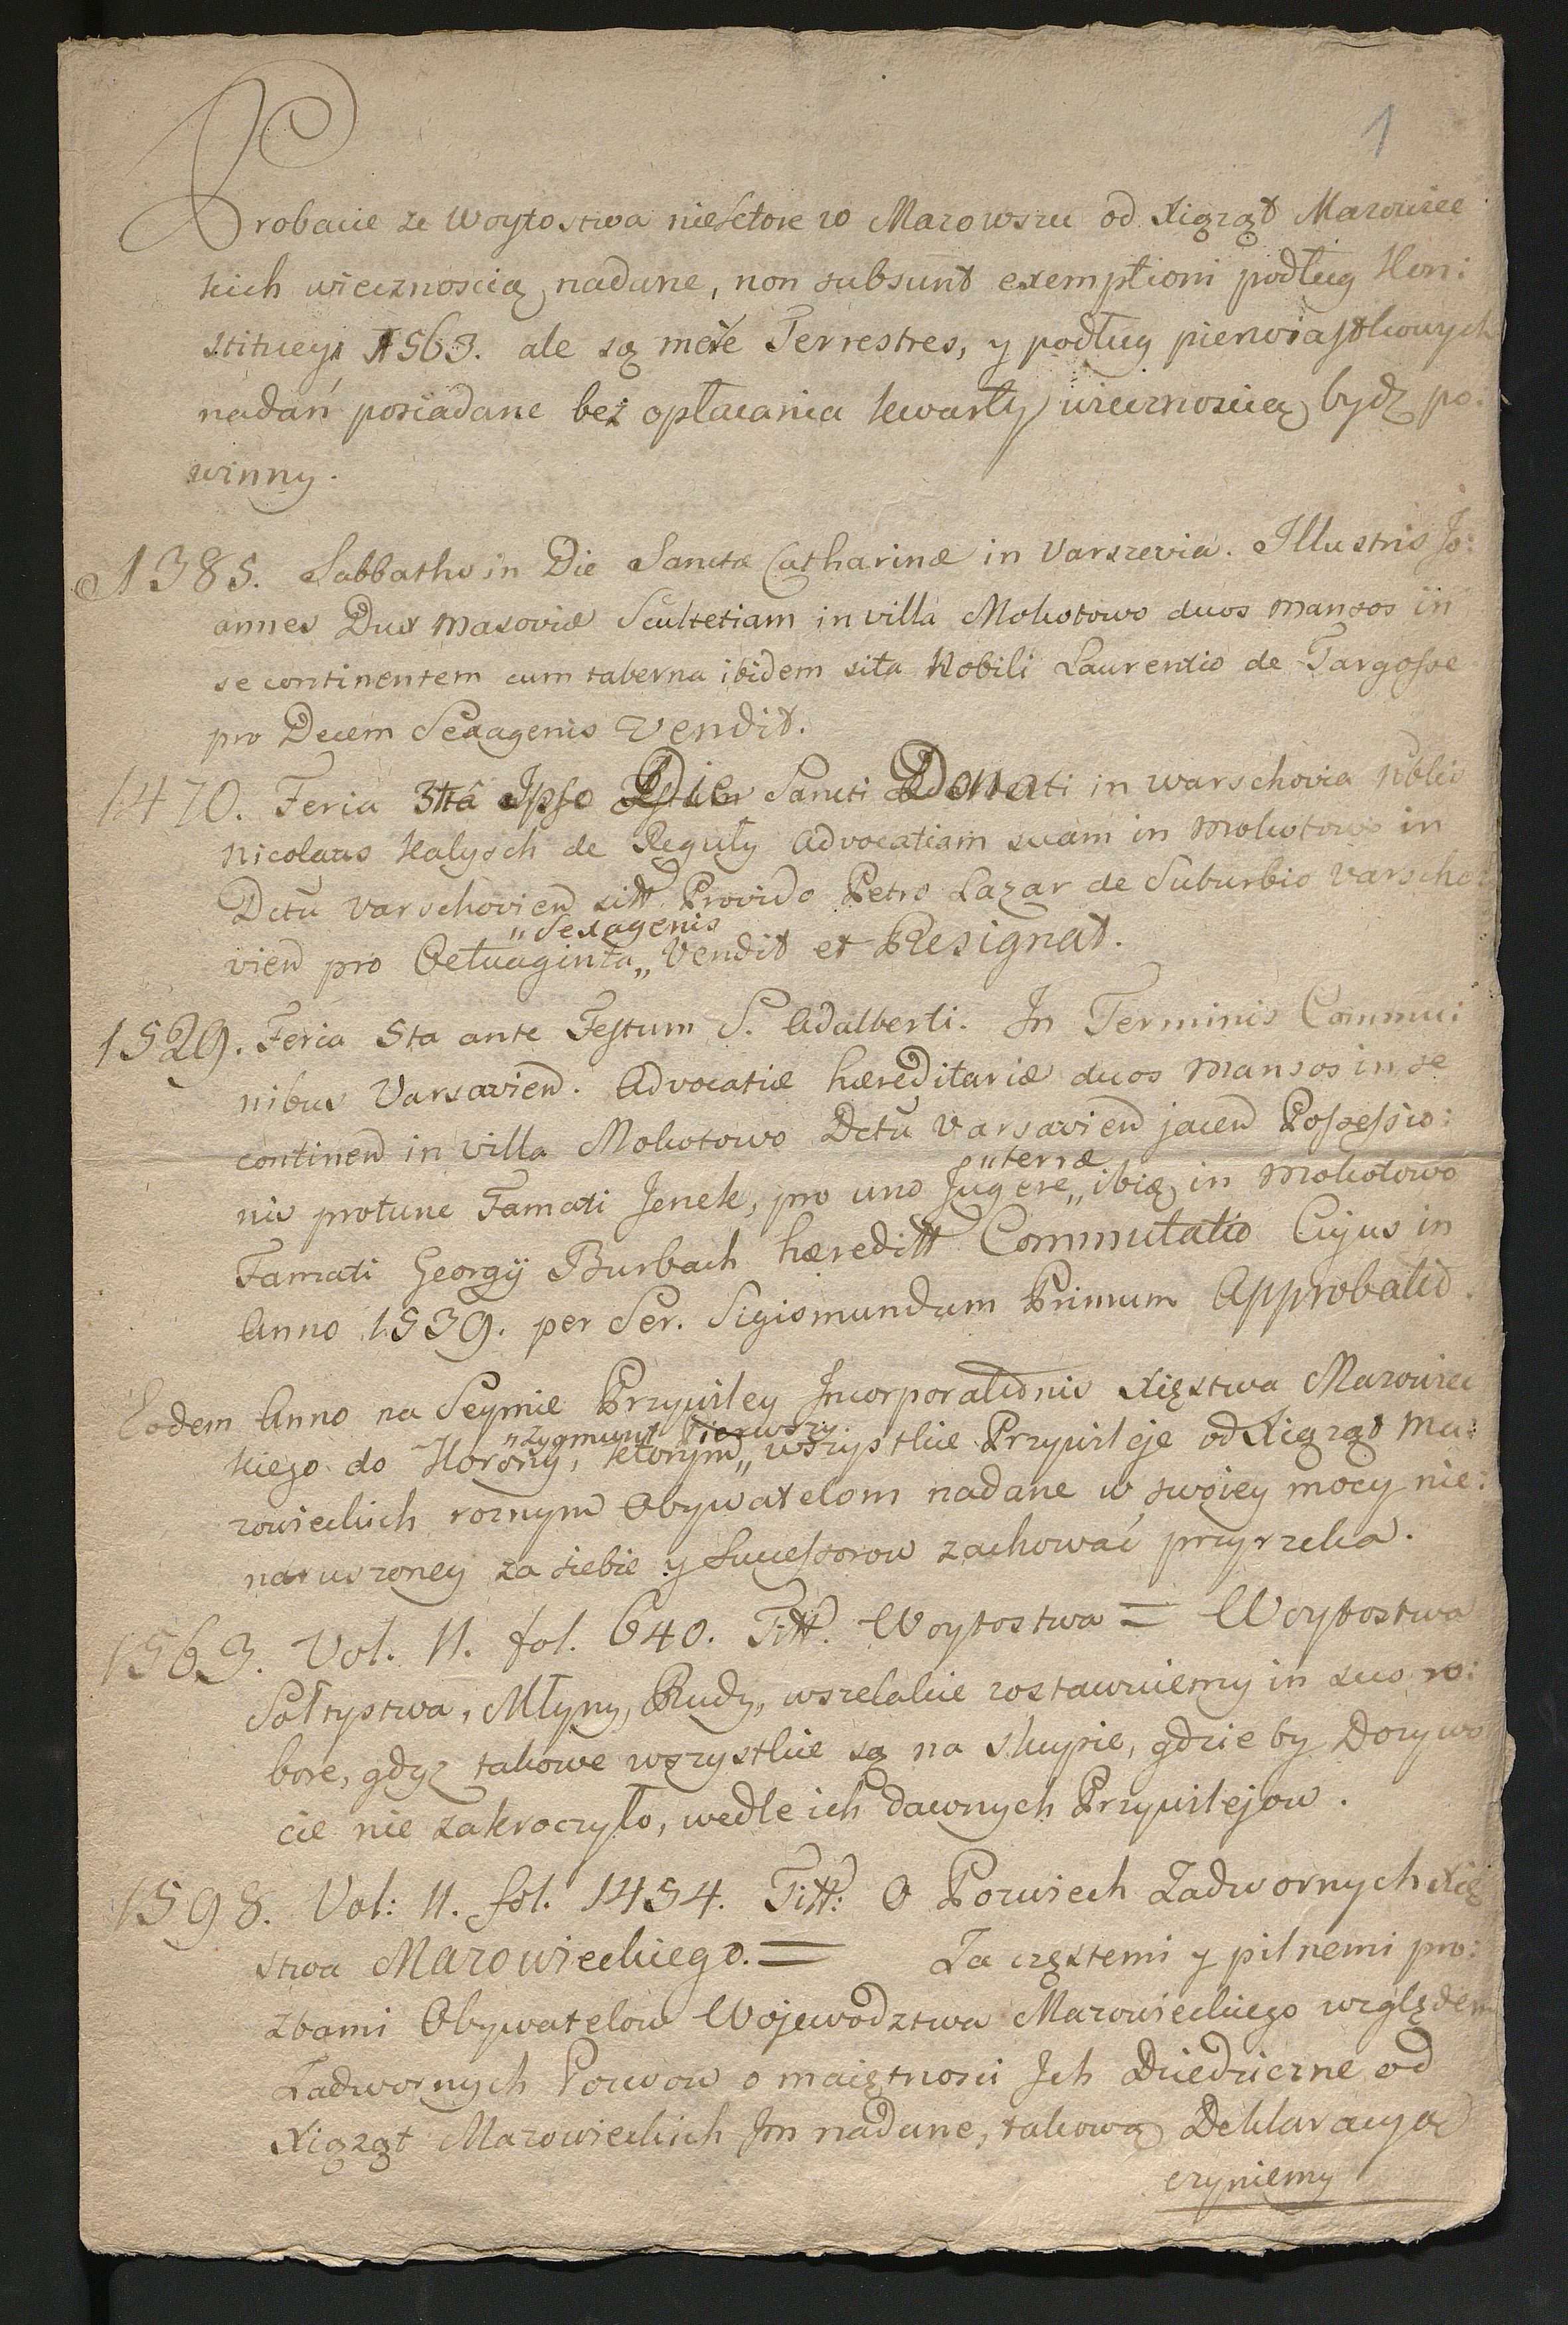 1
Probacie ze Woytostwa niektore w Mazowszu od Xiążąt Mazowiec
kich wiecznoscią nadane, non subsunt exemptioni podług Kon:
stitucyi 1563. ale są mere Terrestres, y podług pierwiastkowych
nadań posiadane bez opłacania kwarty wiecznoscią bydz po:
winny.
1385. Sabbatho in Die Sanctæ Catharinæ in Varszevia. Illustris Jo:
annes Dux Masoviæ Scultetiam in villa Mokotowo duos mansos in
se continentem cum taberna ibidem sita Nobili Laurentio de Targosse
pro Decem Sexagenis Vendit.
1470. Feria 3tia Ipso Die Sancti Donati in Warschovia Nblis
Nicolaus Kalysch de Reguły Advocatiam suam in Mokotowo in
Dctu Varschovien sitt Provido Petro Lazar de Suburbio Varscho
„Sexagenis
vien pro Octuaginta„ Vendit et Resignat.
1529. Feria 5ta ante Festum S. Adalberti. In Terminis Commu:
nibus Varsavien. Advocatiæ hæreditariæ duos Mansos in se
continen in villa Mokotowo Dctu Varsavien jacen Possessio:
„terræ
nis protunc Famati Jenek, pro uno Jugere„ ibiq in Mokotowo
Famati Georgij Burbach hæreditt Commutatio Cujus in
Anno 1539. per Ser. Sigismundum Primum Approbatio.
Eodem Anno na Seymie Przywiley Incorporationis Xięstwa Mazowiec
„Zygmunt Pierwszy
kiego do Korony, ktorym„ wszystkie Przywileje od Xiążąt Ma:
zowieckich roznym Obywatelom nadane w swoiey mocy nie:
naruszoney za siebie y Successorow zachować przyrzeka.
1563. Vol. II. fol. 640. Titt. Woytostwa = Woytostwa
Sołtystwa, Młyny, Rudy, wszelakie zostawuiemy in suo ro:
bore, gdyz takowe wszystkie są na skupie, gdzie by Dozywo
cie nie zakroczyło, wedle ich dawnych Przywilejow.
1598. Vol: II. fol. 1454. Titt: O Pozwiech Zadwornych Xię
stwa Mazowieckiego. = Za częstemi y pilnemi pro:
zbami Obywatelow Wojewodztwa Mazowieckiego względem
Zadwornych Pozwow o maiętnosci Ich Dziedziczne od
Xiążąt Mazowieckich Im nadane, takową Deklaracyą
czyniemy